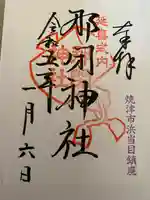 奉拝
焼津市浜当目鎮座
延喜式内
那閉神社
令和五年
一月六日